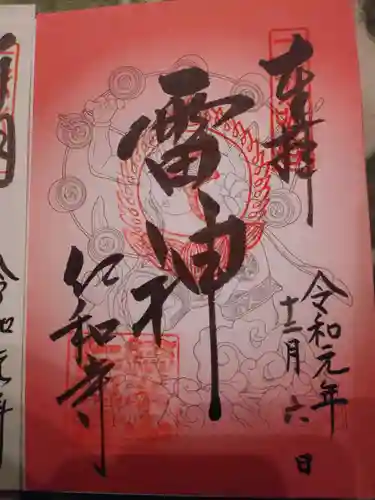 奉拝
令和元年
十二月六日
雷神
仁和寺
令和元年